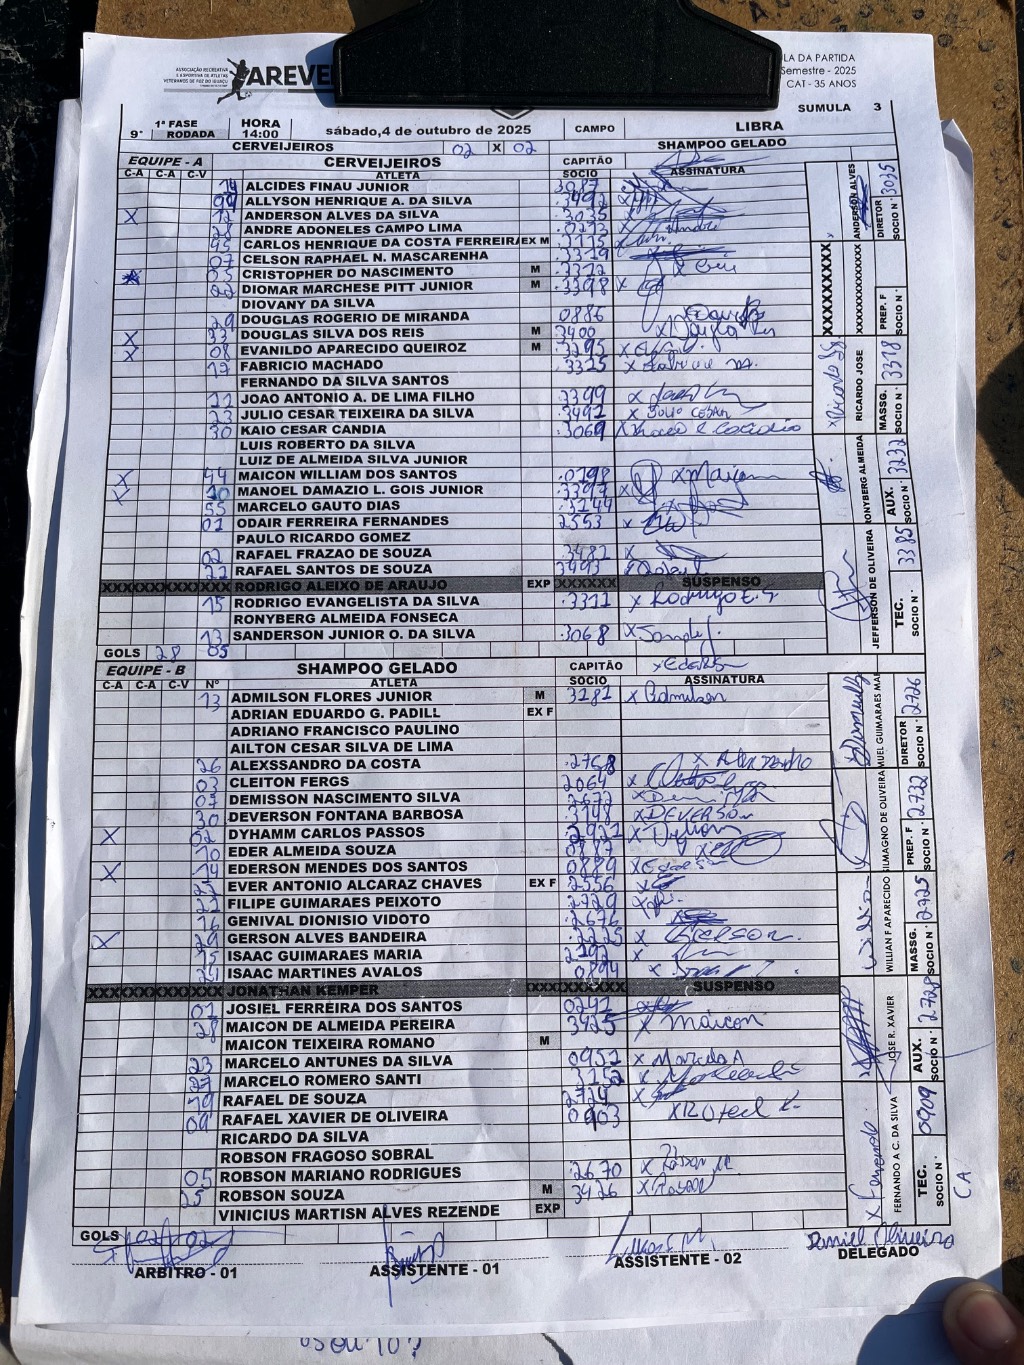 ASSOCIAÇÃO RECREATIVA
E ESPORTIVA DE ATLETAS
VETERANOS DE FOZ DO IGUAÇU
AREVE
LA DA PARTIDA
Semestre - 2025
CAT - 35 ANOS
SUMULA 3
9ª 1ª FASE RODADA HORA 14:00 sábado,4 de outubro de 2025 CAMPO LIBRA
CERVEIJEIROS 02 X 02 SHAMPOO GELADO
EQUIPE - A CERVEIJEIROS CAPITÃO
C-A C-A C-V ATLETA SOCIO ASSINATURA
14 ALCIDES FINAU JUNIOR 3087
99 ALLYSON HENRIQUE A. DA SILVA .3492
X 12 ANDERSON ALVES DA SILVA 3035
28 ANDRE ADONELES CAMPO LIMA .0273
95 CARLOS HENRIQUE DA COSTA FERREIRA EX M .3175
07 CELSON RAPHAEL N. MASCARENHA .3379
05 CRISTOPHER DO NASCIMENTO M .3372
02 DIOMAR MARCHESE PITT JUNIOR M .3398 X
DIOVANY DA SILVA
29 DOUGLAS ROGERIO DE MIRANDA 0886
X 33 DOUGLAS SILVA DOS REIS M 3400
X 08 EVANILDO APARECIDO QUEIROZ M .3295
17 FABRICIO MACHADO .3325
FERNANDO DA SILVA SANTOS
11 JOAO ANTONIO A. DE LIMA FILHO .3399
23 JULIO CESAR TEIXEIRA DA SILVA .3491 X JULIO CESAR
30 KAIO CESAR CANDIA .3069
LUIS ROBERTO DA SILVA
LUIZ DE ALMEIDA SILVA JUNIOR
X 44 MAICON WILLIAM DOS SANTOS .0798 X Maicon
X 10 MANOEL DAMAZIO L. GOIS JUNIOR .3397
55 MARCELO GAUTO DIAS .3144
01 ODAIR FERREIRA FERNANDES 2553
PAULO RICARDO GOMEZ
02 RAFAEL FRAZAO DE SOUZA .3482
22 RAFAEL SANTOS DE SOUZA .3493
XXXXXXXXXXXX RODRIGO ALEIXO DE ARAUJO EXP XXXXXX SUSPENSO
15 RODRIGO EVANGELISTA DA SILVA .3311 X Rodrigo E. S
RONYBERG ALMEIDA FONSECA
13 SANDERSON JUNIOR O. DA SILVA .3068
GOLS 28 05
ANDERSON ALVES DIRETOR SOCIO N° 3035
XXXXXXXXX XXXXXXXXXXXXXXX PREP. F SOCIO N°
RICARDO JOSE MASSG. SOCIO N° 3378
RONYBERG ALMEIDA AUX. SOCIO N° 3232
JEFFERSON DE OLIVEIRA TEC. 3385
EQUIPE - B SHAMPOO GELADO CAPITÃO
C-A C-A C-V Nº ATLETA SOCIO ASSINATURA
13 ADMILSON FLORES JUNIOR M 3181 X Admilson
ADRIAN EDUARDO G. PADILL EX F
ADRIANO FRANCISCO PAULINO
AILTON CESAR SILVA DE LIMA
26 ALEXSSANDRO DA COSTA .2758
03 CLEITON FERGS 2064
07 DEMISSON NASCIMENTO SILVA 2672
30 DEVERSON FONTANA BARBOSA .3148 X DEVERSON
X 02 DYHAMM CARLOS PASSOS .2921
10 EDER ALMEIDA SOUZA 0787
X 14 EDERSON MENDES DOS SANTOS 0889
21 EVER ANTONIO ALCARAZ CHAVES EX F 2556
22 FILIPE GUIMARAES PEIXOTO .2729
16 GENIVAL DIONISIO VIDOTO .2676
X 29 GERSON ALVES BANDEIRA .2225 X Gerson.
15 ISAAC GUIMARAES MARIA 2192
24 ISAAC MARTINES AVALOS 0894
XXXXXXXXXXXX JONATHAN KEMPER XXXXXXXXXX SUSPENSO
01 JOSIEL FERREIRA DOS SANTOS 0241
28 MAICON DE ALMEIDA PEREIRA 3425 X Maicon
MAICON TEIXEIRA ROMANO M
23 MARCELO ANTUNES DA SILVA 0951 X Marcelo A
27 MARCELO ROMERO SANTI 3152
19 RAFAEL DE SOUZA 2724
09 RAFAEL XAVIER DE OLIVEIRA 0903
RICARDO DA SILVA
ROBSON FRAGOSO SOBRAL
05 ROBSON MARIANO RODRIGUES .2670
25 ROBSON SOUZA M 3426
VINICIUS MARTISN ALVES REZENDE EXP
GOLS 02 02
MUEL GUIMARAES MAR DIRETOR SOCIO N° 2726
SILMAGNO DE OLIVEIRA PREP. F SOCIO N° 2732
WILLIAN F APARECIDO MASSG. SOCIO N° 2725
JOSE R. XAVIER AUX. SOCIO N° 2728
X Fernando FERNANDO A C. DA SILVA TEC. SOCIO N° 0909
CA
ARBITRO - 01 ASSISTENTE - 01 ASSISTENTE - 02 Daniel Oliveira DELEGADO